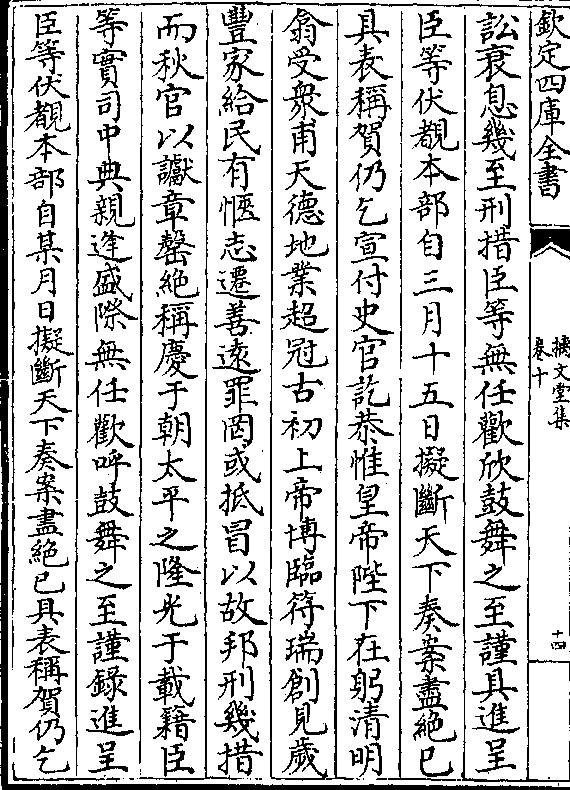 欽定四庫全書
摛文堂集
卷十
十四
訟衰息幾至刑措臣等無任歡欣鼓舞之至謹具進呈
臣等伏覩本部自三月十五日擬斷天下奏案盡絶已
具表稱賀仍乞宣付史官訖恭惟皇帝陛下在躬清明
翕受衆甫天德地業超冠古初上帝博臨符瑞創見歲
豐家給民有恆志遷善逺罪罔或抵冒以故邦刑幾措
而秋官以讞章罄絶稱慶于朝太平之隆光于載籍臣
等實司中典親逢盛際無任歡呼鼓舞之至謹錄進呈
臣等伏覩本部自某月日擬斷天下奏案盡絶已具表稱賀仍乞